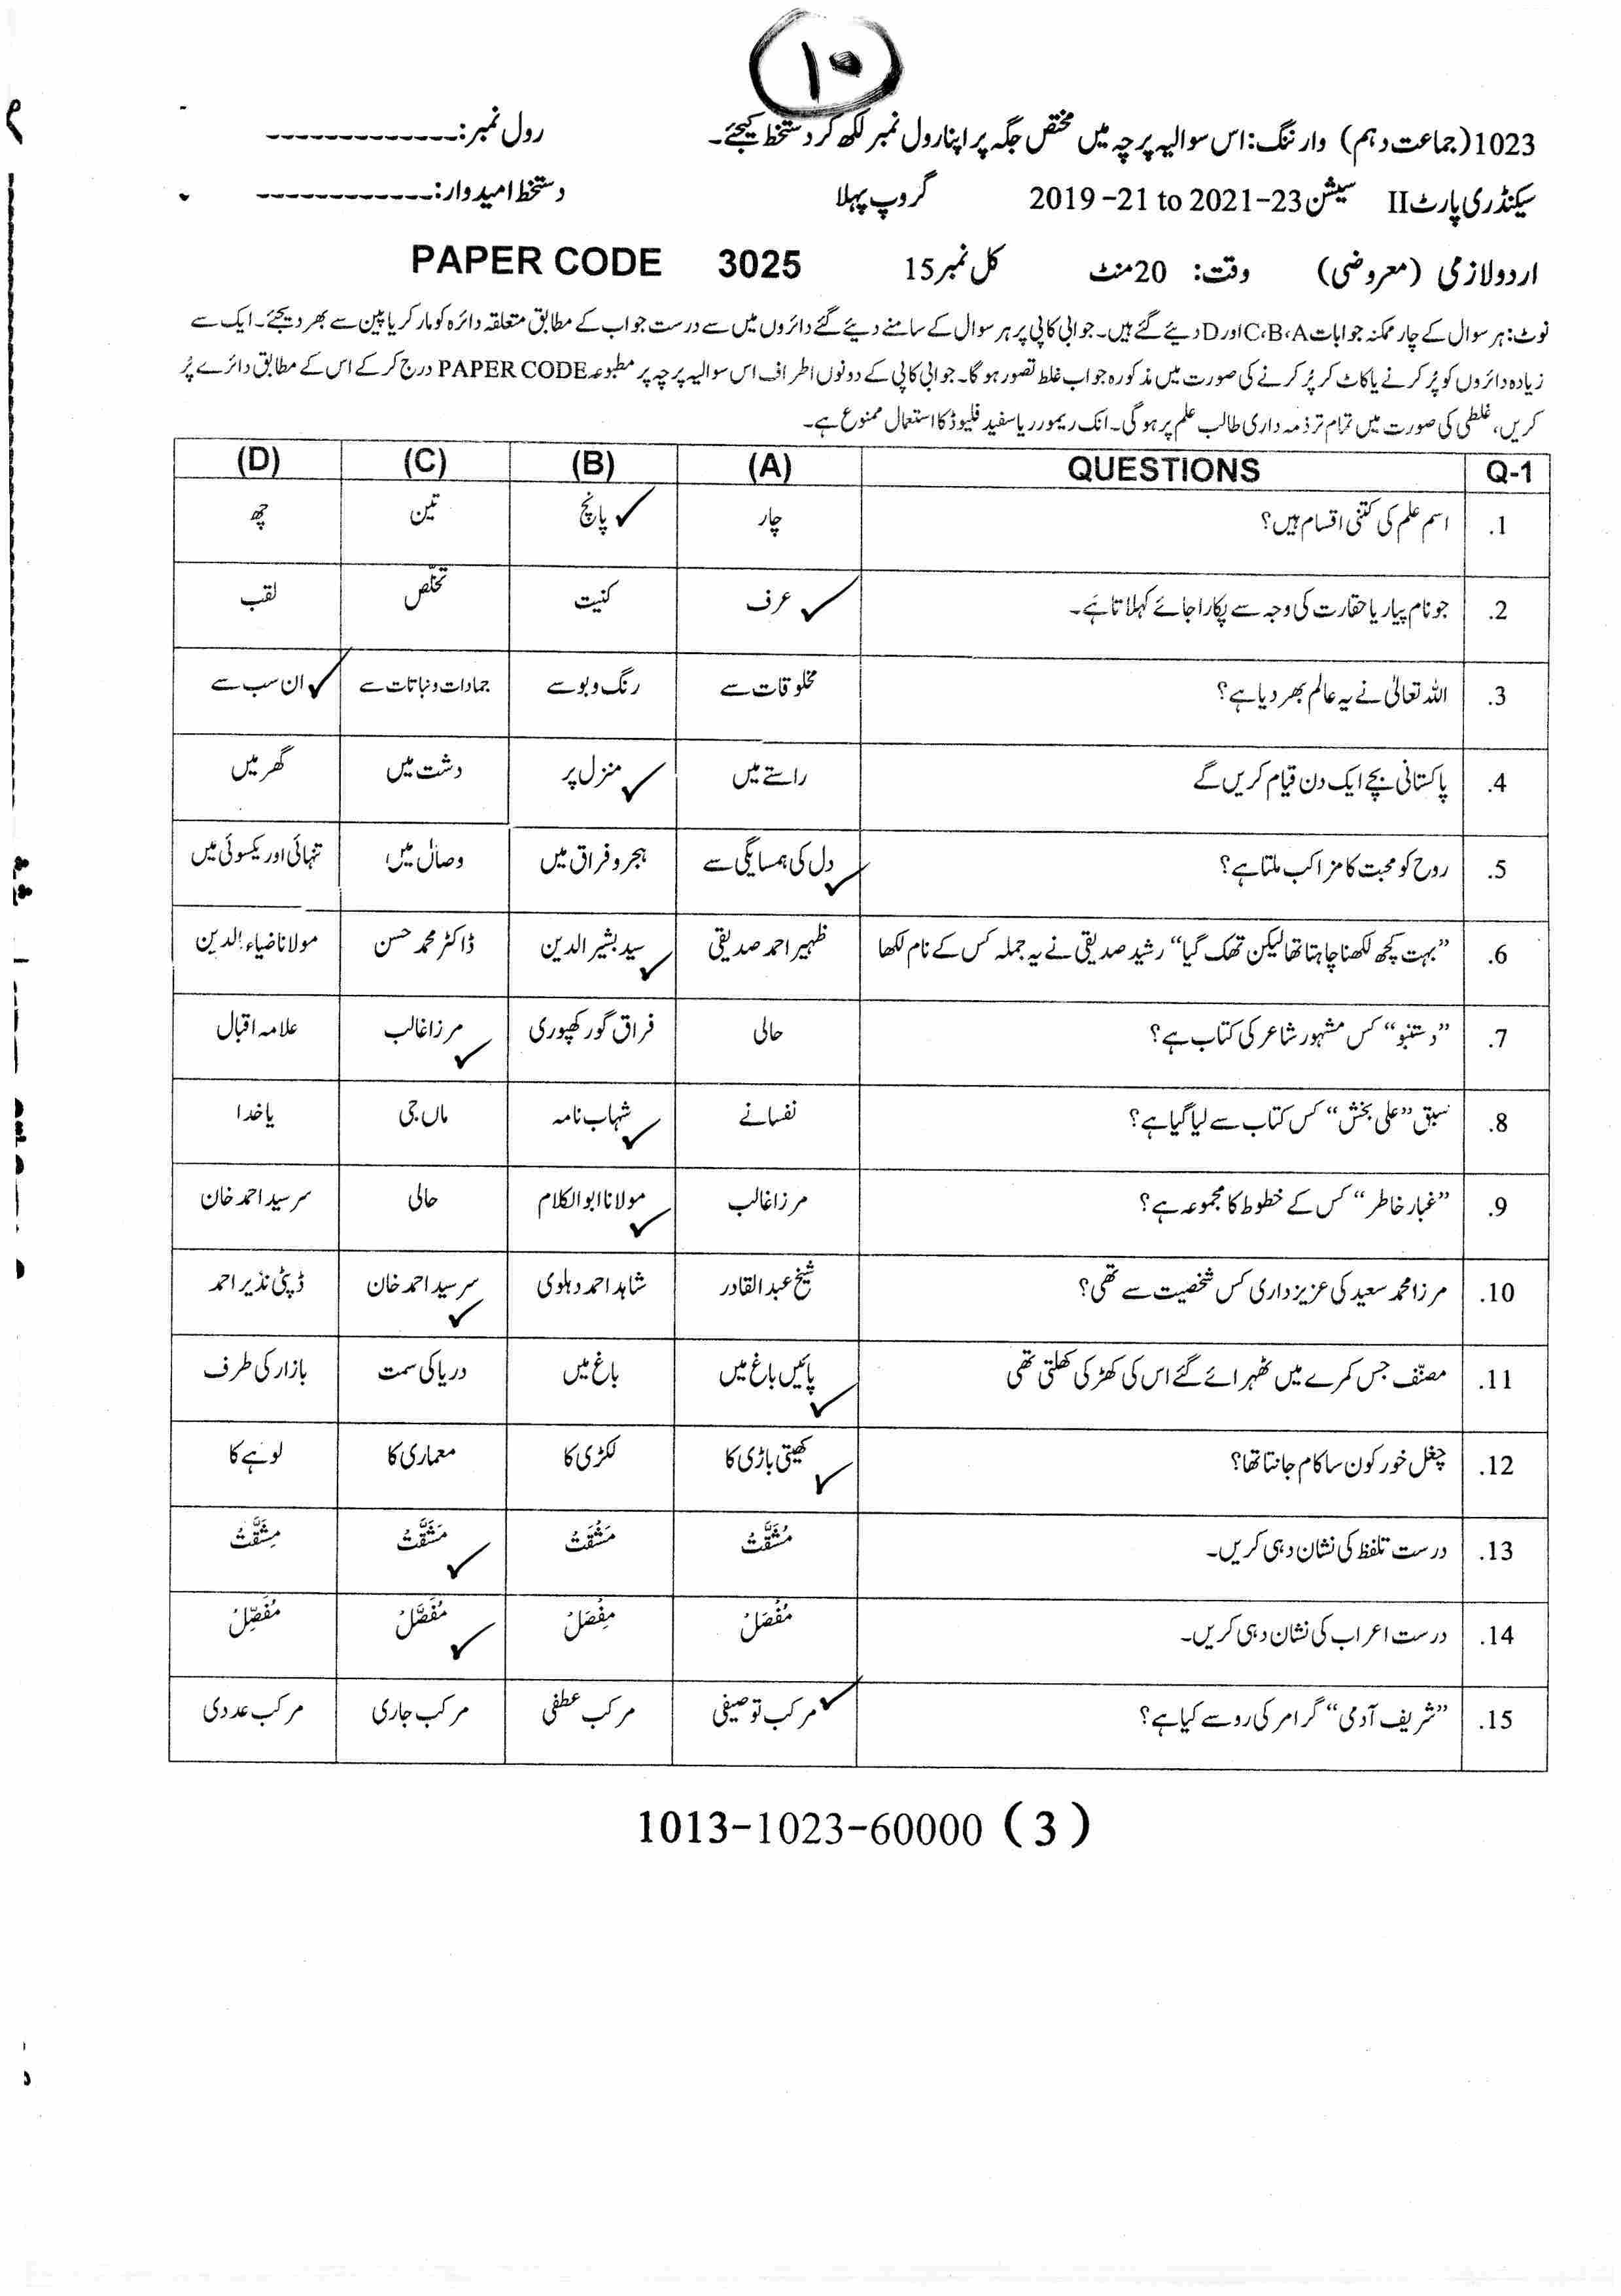 ۱۰
1023 (جماعت دہم) وارننگ: اس سوالیہ پرچہ میں مختص جگہ پر اپنا رول نمبر لکھ کر دستخط کیجئے۔ رول نمبر: -------------
سیکنڈری پارٹ II سیشن 2019-21 to 2021-23 گروپ پہلا دستخط امیدوار: -------------
اردو لازمی (معروضی) وقت: 20 منٹ کل نمبر 15 PAPER CODE 3025
نوٹ: ہر سوال کے چار ممکنہ جوابات A،B،C اور D دیئے گئے ہیں۔ جوابی کاپی پر ہر سوال کے سامنے دیئے گئے دائروں میں سے درست جواب کے مطابق متعلقہ دائرہ کو مارکر یا پین سے بھر دیجئے۔ ایک سے
زیادہ دائروں کو پُر کرنے یا کاٹ کر پُر کرنے کی صورت میں مذکورہ جواب غلط تصور ہو گا۔ جوابی کاپی کے دونوں اطراف اس سوالیہ پرچہ پر مطبوعہ PAPER CODE درج کر کے اس کے مطابق دائرے پُر
کریں، غلطی کی صورت میں تمام تر ذمہ داری طالب علم پر ہو گی۔ انک ریمورر یا سفید فلیوڈ کا استعمال ممنوع ہے۔
Q-1 QUESTIONS (A) (B) (C) (D)
1. اسم علم کی کتنی اقسام ہیں؟ چار پانچ تین چھ
2. جو نام پیار یا حقارت کی وجہ سے پکارا جائے کہلاتا ہے۔ عرف کنیت تخلّص لقب
3. اللہ تعالیٰ نے یہ عالم بھر دیا ہے؟ مخلوقات سے رنگ و بو سے جمادات و نباتات سے ان سب سے
4. پاکستانی بچے ایک دن قیام کریں گے راستے میں منزل پر دشت میں گھر میں
5. روح کو محبت کا مزا کب ملتا ہے؟ دل کی ہمسایگی سے ہجر و فراق میں وصال میں تنہائی اور یکسوئی میں
6. ”بہت کچھ لکھنا چاہتا تھا لیکن تھک گیا“ رشید صدیقی نے یہ جملہ کس کے نام لکھا ظہیر احمد صدیقی سید بشیر الدین ڈاکٹر محمد حسن مولانا ضیاء الدین
7. ”دستنبو“ کس مشہور شاعر کی کتاب ہے؟ حالی فراق گورکھپوری مرزا غالب علامہ اقبال
8. سبق ”علی بخش“ کس کتاب سے لیا گیا ہے؟ نفسانے شہاب نامہ ماں جی یا خدا
9. ”غبار خاطر“ کس کے خطوط کا مجموعہ ہے؟ مرزا غالب مولانا ابوالکلام حالی سر سید احمد خان
10. مرزا محمد سعید کی عزیز داری کس شخصیت سے تھی؟ شیخ عبدالقادر شاہد احمد دہلوی سر سید احمد خان ڈپٹی نذیر احمد
11. مصنّف جس کمرے میں ٹھہرائے گئے اس کی کھڑکی کھلتی تھی پائیں باغ میں باغ میں دریا کی سمت بازار کی طرف
12. چغل خور کون سا کام جانتا تھا؟ کھیتی باڑی کا لکڑی کا معماری کا لوہے کا
13. درست تلفظ کی نشان دہی کریں۔ مُشَقَّتْ مَشُقَتْ مَشَقَّتْ مِشَقَّتْ
14. درست اعراب کی نشان دہی کریں۔ مُفُصَلْ مِفُصَلْ مُفَصَّلْ مُفَصِّلْ
15. ”شریف آدمی“ گرامر کی رو سے کیا ہے؟ مرکب توصیفی مرکب عطفی مرکب جاری مرکب عددی
1013-1023-60000 (3)